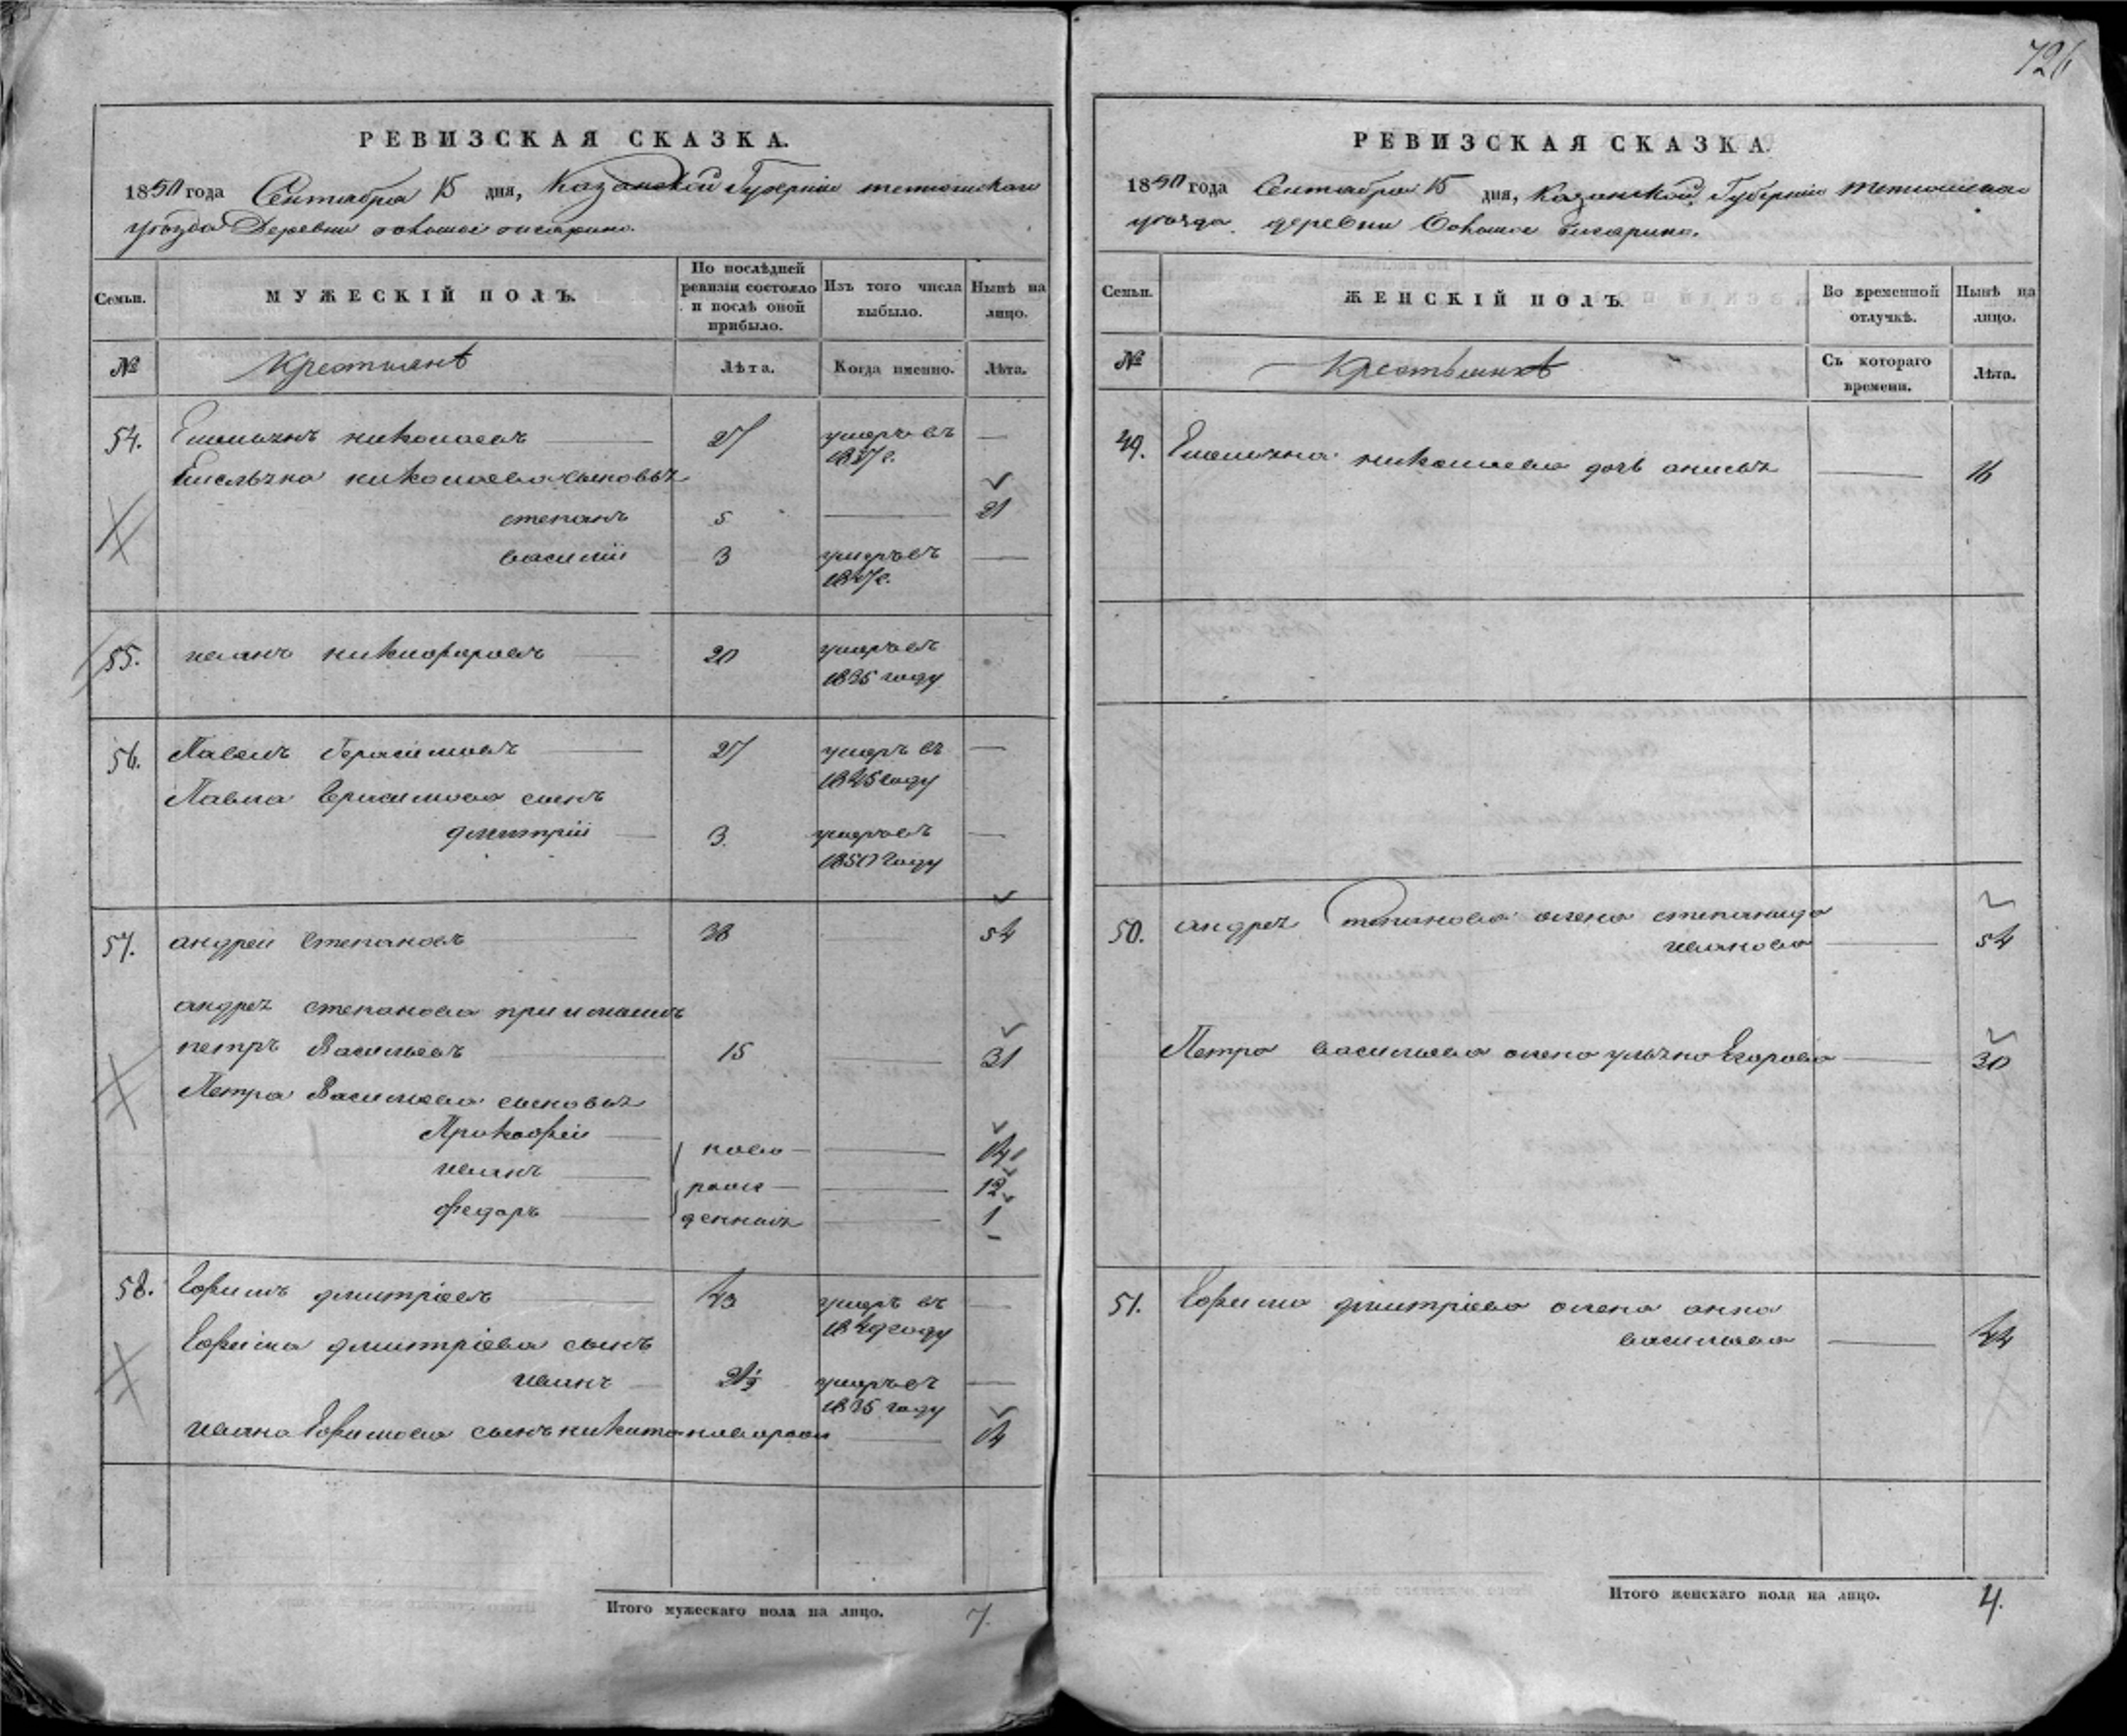 726
РЕВИЗСКАЯ СКАЗКА.
1850 года Сентября 15 дня, Казанской Губернии тетюшскаго
уѣзда Деревни
Семьи.
МУЖЕСКІЙ ПОЛЪ.
По послѣдней ревизіи состояло и послѣ оной прибыло.
Изъ того числа выбыло.
Нынѣ на лицо.
№
Крестьянѣ
Лѣта.
Когда именно.
Лѣта.
54. николаевъ 27 умеръ въ —
николаева сыновья
степанъ 5 — 21
василий 3 умеръ въ —
1847 г.
55. иванъ никифоровъ — 20 умеръ въ
1835 году
56. Павелъ Герасимовъ — 27 умеръ въ —
1845 году
Павла Герасимова сынъ
дмитрій — 3. умеръ въ —
1850 году
57. андрей Степановъ — 38 — 54
андрея степанова приимышъ
петръ Васильевъ — 15 — 31
Петра Васильева сыновья
Прокофей — ново — — 14
иванъ — рож — — 12
федоръ — денныя — 1
58. Ефимъ дмитріевъ — 43 умеръ въ —
1849 году
Ефима дмитріева сынъ
иванъ — 21½ умеръ въ —
1835 году
ивана Ефимова сынъ никита новорож — 14
Итого мужескаго пола на лицо. 7.
РЕВИЗСКАЯ СКАЗКА.
1850 года Сентября 15 дня, Казанской Губерніи Тетюшскаго
уѣзда деревни
Семьи.
ЖЕНСКІЙ ПОЛЪ.
Во временной отлучкѣ.
Нынѣ на лицо.
№
Крестьянкѣ
Съ котораго времени.
Лѣта.
49. николаева дочь — 16
50. андрея Степанова жена степанида
иванова — 54
Петра васильева жена ульяна Егорова — 30
51. Ефима дмитріева жена анна
васильева — 44
Итого женскаго пола на лицо. 4.